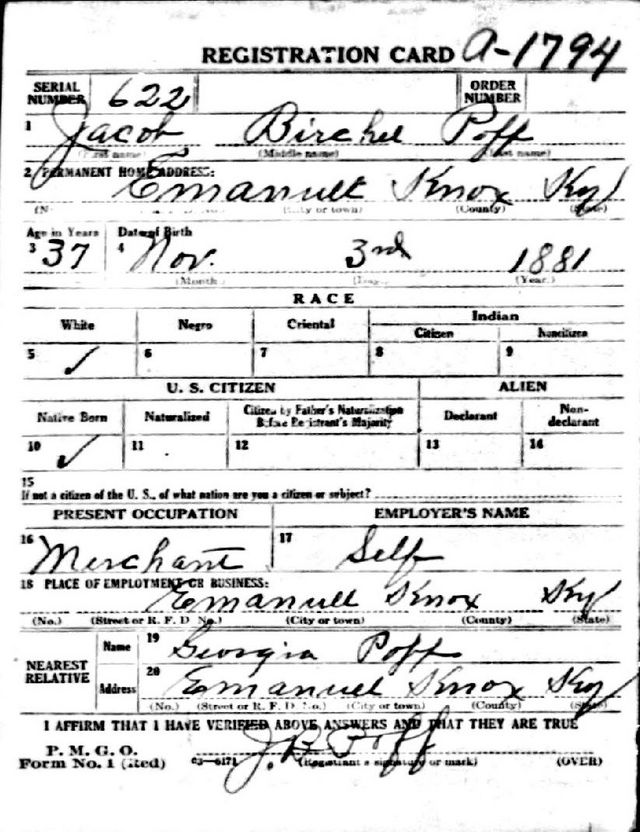 REGISTRATION CARD A-1794
SERIAL NUMBER 622 ORDER NUMBER
1 Jacob Birchel Poff
(First name) (Middle name) (Last name)
2 PERMANENT HOME ADDRESS:
Emanuell Knox Ky
(City or town) (County) (State)
Age in Years Date of Birth
3 37 4 Nov. 3rd 1881
(Month) (Day) (Year)
RACE
White Negro Oriental Indian
Citizen Noncitizen
5 ✓ 6 7 8 9
U. S. CITIZEN ALIEN
Native Born Naturalized Citizen by Father's Naturalization Before Registrant's Majority Declarant Non-declarant
10 ✓ 11 12 13 14
15
If not a citizen of the U. S., of what nation are you a citizen or subject?
PRESENT OCCUPATION EMPLOYER'S NAME
16 Merchant 17 Self
18 PLACE OF EMPLOYMENT OR BUSINESS:
Emanuell Knox Ky
(No.) (Street or R. F. D. No.) (City or town) (County) (State)
NEAREST RELATIVE
Name 19 Georgia Poff
Address 20 Emanuell Knox Ky
(No.) (Street or R. F. D. No.) (City or town) (County) (State)
I AFFIRM THAT I HAVE VERIFIED ABOVE ANSWERS AND THAT THEY ARE TRUE
P. M. G. O.
Form No. 1 (Red) 03—6171 J. B. Poff
(Registrant's signature or mark) (OVER)